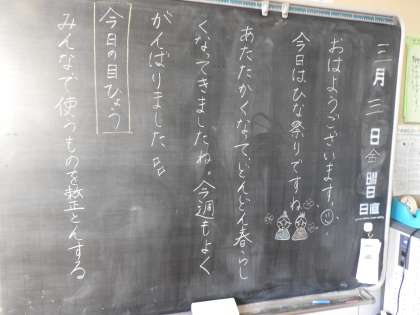 三月三日金曜日
日直
おはようございます。
今日はひな祭りですね
あたたかくなて、どんどん春らし
くなってきましたね。今週もよく
がんばりました。
今日の目ひょう
みんなで使うものを整とんする